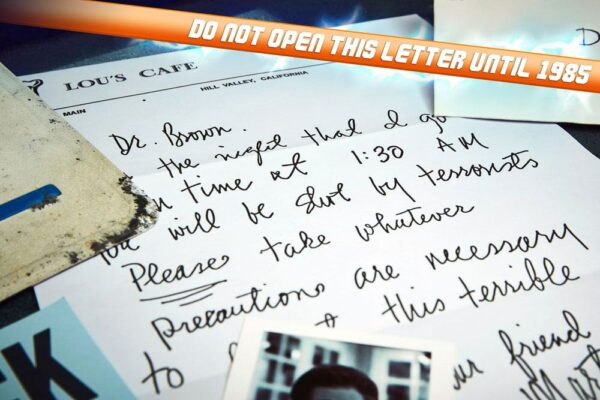 DO NOT OPEN THIS LETTER UNTIL 1985
D
LOU'S CAFE
HILL VALLEY, CALIFORNIA
MAIN
Dr. Brown.
the night that I go
in time at 1:30 AM
you will be shot by terrorists
Please take whatever
precautions are necessary
to this terrible
friend
CK